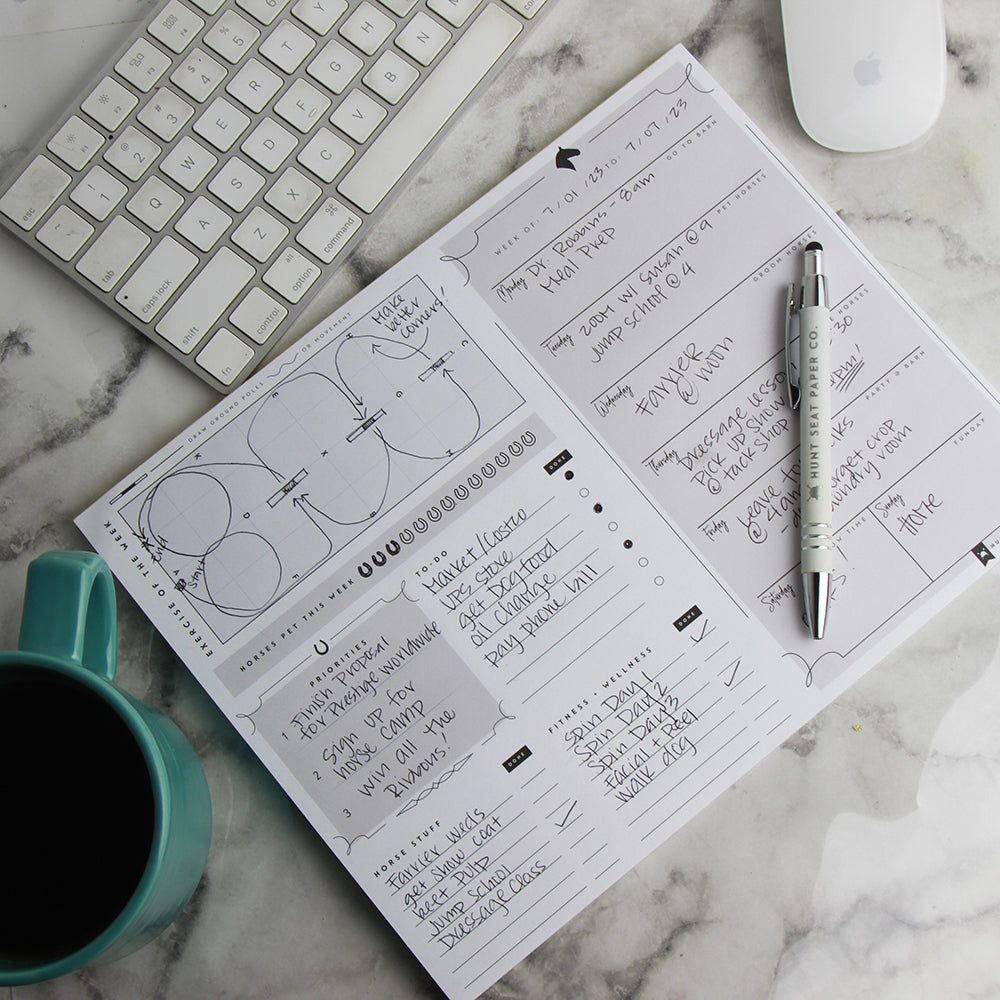 WEEK OF: 7/01/23 TO: 7/07/23
Monday
Dr. Robbins - 8am
Meal Prep
GO TO BARM
Tuesday
Zoom w/ Susan @ 9
Jump School @ 4
PET HORSES
Wednesday
Farrier
@ noon
GROOM HORSES
Thursday
Dressage
Pick up Show
@ tack shop
HORSES
30
Friday
Leave
@ 4am
crop
laundry room
PARTY @ BARM
Saturday
TIME
Sunday
Home
FUNDAY
HUNT SEAT PAPER CO.
EXERCISE OF THE WEEK
DRAW GROUND POLES
OR MOVEMENT
Make
better
corners!
Start
End
K
E
H
C
G
X
D
B
M
F
HORSES PET THIS WEEK
PRIORITIES
1 Finish Proposal
for Prestige Worldwide
2 Sign up for
horse camp
3 Win all the
Ribbons!
TO-DO
DONE
Market/Costco
UPS Store
get Dog food
oil change
Pay phone bill
HORSE STUFF
DONE
Farrier Weds
get show coat
beet pulp
Jump School
Dressage Class
FITNESS + WELLNESS
DONE
Spin Day 1
Spin Day 2
Spin Day 3
Facial + Peel
walk dog
esc
F1
F2
~
`
!
1
@
2
#
3
$
4
%
5
tab
Q
W
E
R
T
Y
caps lock
A
S
D
F
G
H
shift
Z
X
C
V
B
N
M
fn
control
alt
option
⌘
command